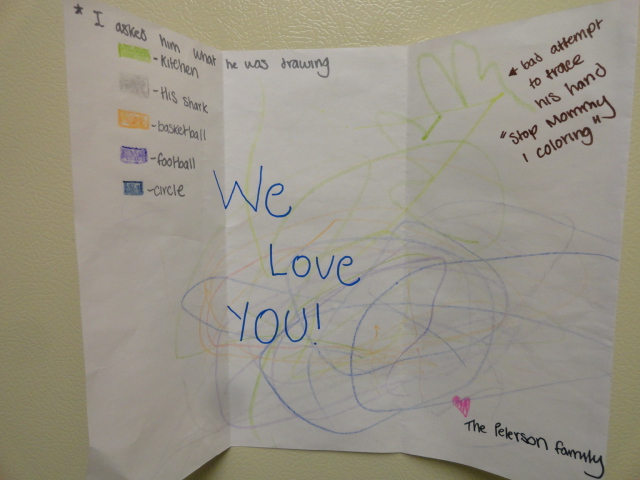 * I asked him what he was drawing
- Kitchen
- His shark
- basketball
- football
- circle
bad attempt
to trace
his hand
"Stop Mommy
I coloring"
We
Love
YOU!
The Peterson family